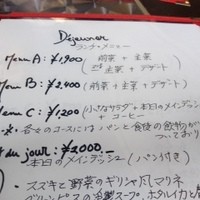 Déjeuner
ランチ・メニュー
Menu A: ¥1,900 (前菜 + 主菜
主菜 + デザート)
Menu B: ¥2,400 (前菜 + 主菜 + デザート)
Menu C: ¥1,200 (小さなサラダ + 本日のメインディッシュ
+ コーヒー)
・水・各々のコースには パンと食後の飲物が
ついており
du jour: ¥2,000_
本日のメインディッシュ (パン付き)
スズキと野菜のギリシャ風マリネ
グリーンピースの冷製スープ、ホタルイカと